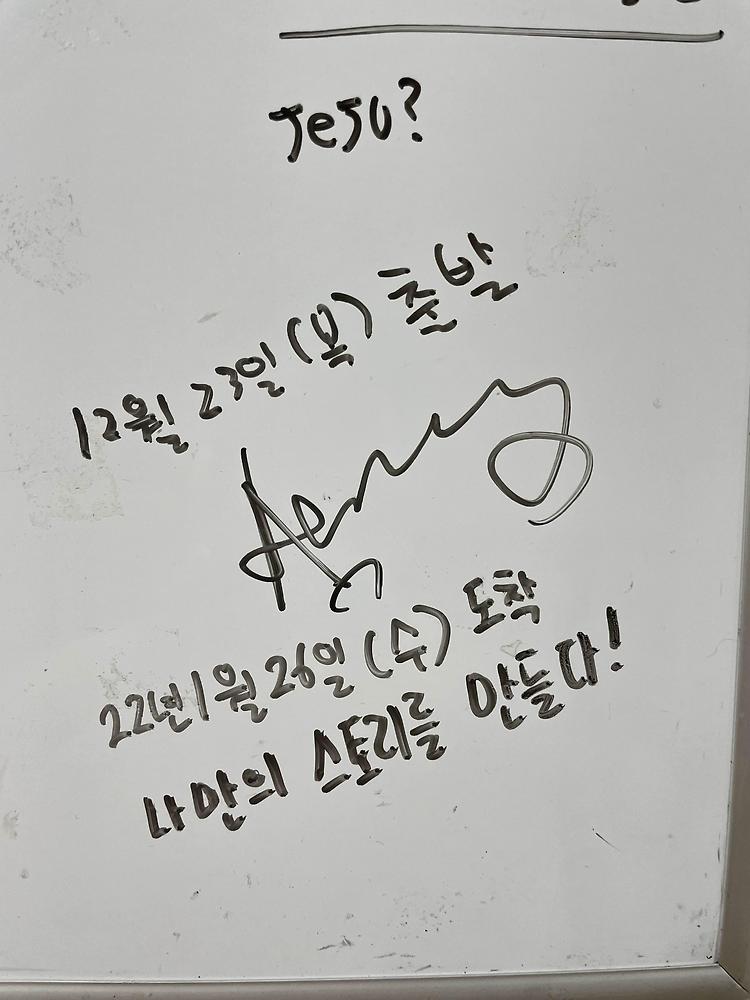 Jeju?
12월 23일 (목) 출발
22년 1월 26일 (수) 도착
나만의 스토리를 만들다!